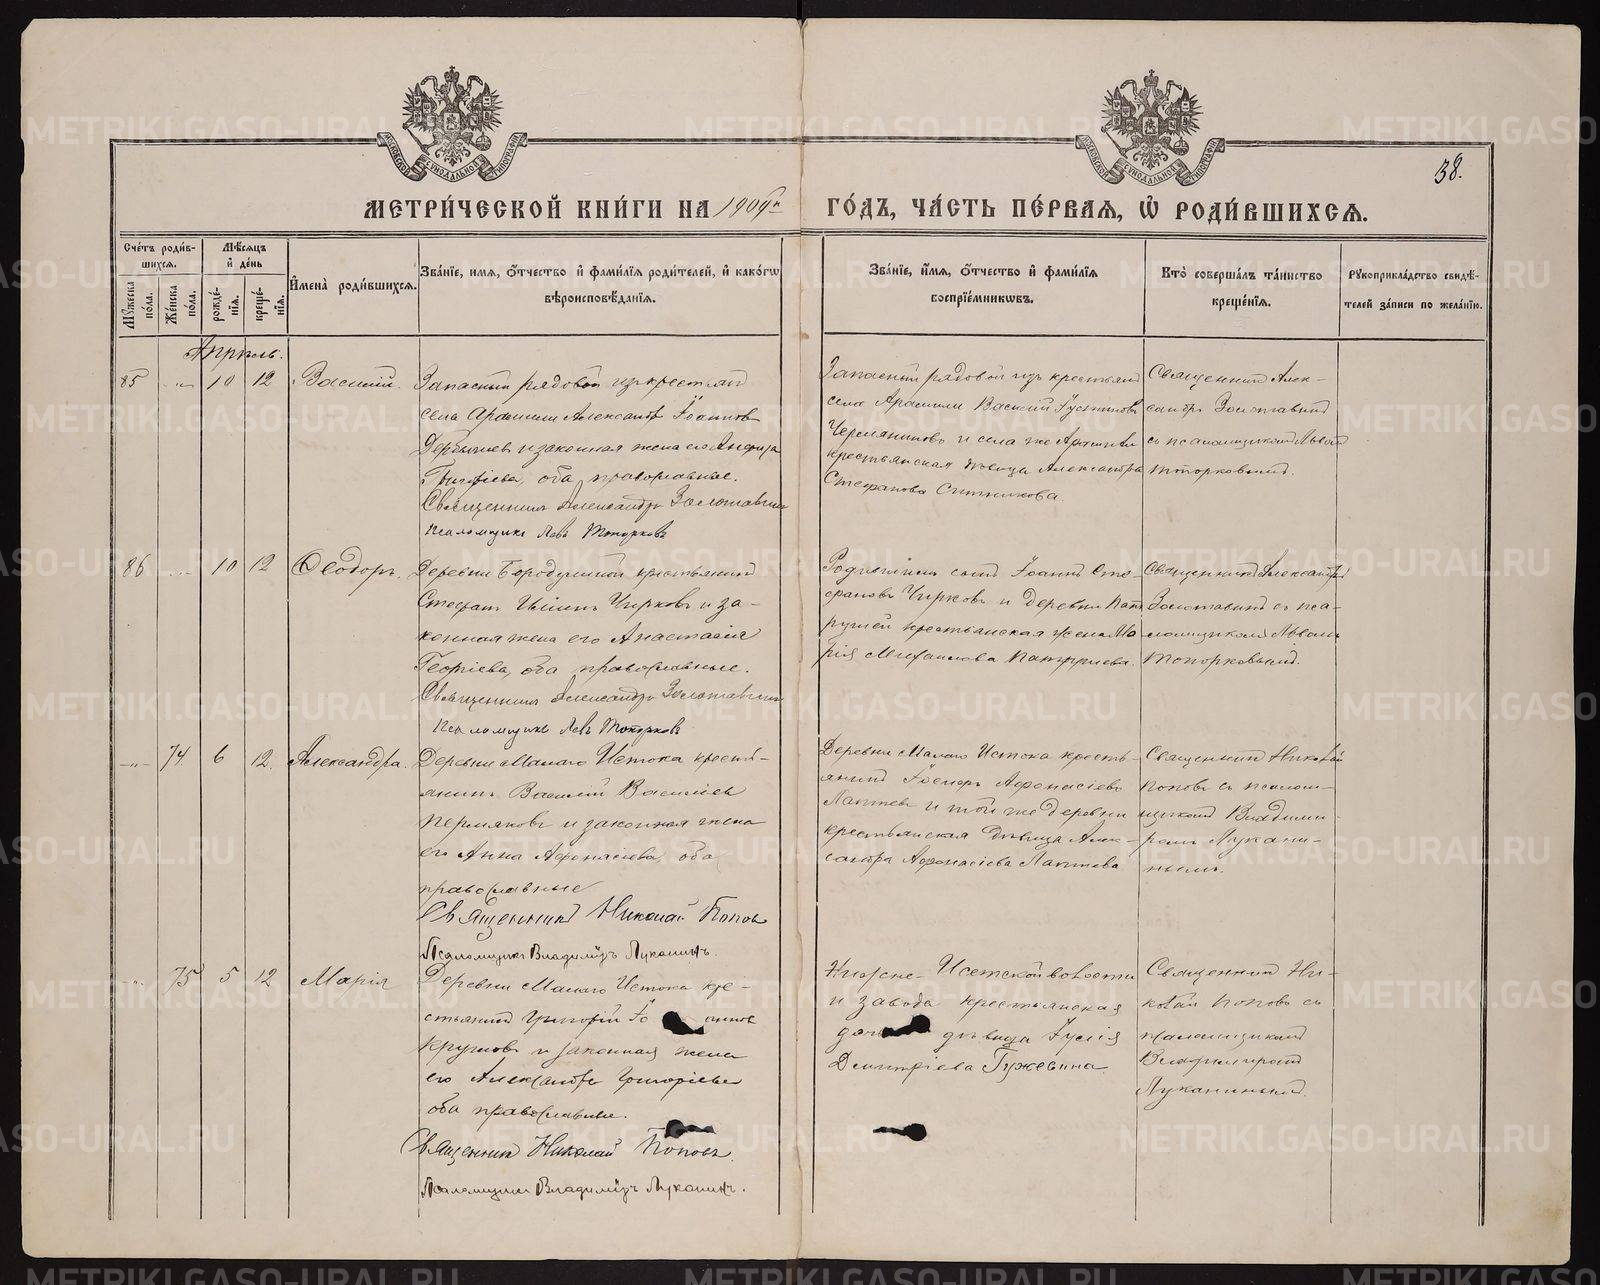 МЕТРИ́ЧЕСКОЙ КНИ́ГИ НА 1909й ГО́ДЪ, ЧА́СТЬ ПЕ́РВАѦ, Ѡ҆ РОДИ́ВШИХСѦ.
38.
МОСКОВСКОЙ СѴНОДАЛЬНОЙ ТИПОГРАФІИ
МОСКОВСКОЙ СѴНОДАЛЬНОЙ ТИПОГРАФІИ
Сче́тъ роди́в-
шихсѧ.
Мѣ́сѧцъ
и҆ де́нь
Мꙋ́жеска по́ла.
Же́нска по́ла.
рожде́-нїѧ.
креще́-нїѧ.
И҆мена̀ роди́вшихсѧ.
Зва́нїе, и҆мѧ, ѻ҆́тчество и҆ фами́лїѧ роди́телей, и҆ како́гѡ
вѣроисповѣ́данїѧ.
Зва́нїе, и҆́мѧ, ѻ҆́тчество и҆ фами́лїѧ
воспрїе́мникѡвъ.
Кто̀ соверша́лъ та́инство
креще́нїѧ.
Рꙋкоприкла́дство свидѣ́-
телей за́писи по жела́нїю.
Апрель.
85 -„- 10 12 Василій.
Запасный рядовой изъ крестьянъ
села Арамили Александръ Іоанновъ
и законная жена его
оба православные.
Священникъ Александръ Золотавинъ
Псаломщикъ Левъ Топорковъ
Запасный рядовой изъ крестьянъ
села Арамили Василій Іустиновъ
и села же Арамили
крестьянская дѣвица Александра
Стефанова Ситникова.
Священникъ Алек-
сандръ Золотавинъ
съ псаломщикомъ Львомъ
Топорковымъ.
86 -„- 10 12 Ѳеодоръ.
Деревни Бородулиной крестьянинъ
Стефанъ Чирковъ и за-
конная жена его Анастасія
Георгіева, оба православные.
Священникъ Александръ Золотавинъ
Псаломщикъ Левъ Топорковъ
сынъ Іоаннъ Сте-
фановъ Чирковъ и деревни Пат-
рушей крестьянская жена Ма-
рія Михаилова Патрушева.
Священникъ Александръ
Золотавинъ съ пса-
ломщикомъ Львомъ
Топорковымъ.
-„- 74 6 12 Александра.
Деревни Малаго Истока кресть-
янинъ Василій Васильевъ
Пермяковъ и законная жена
его Анна Афонасіева, оба
православные
Священникъ Николай Поповъ
Псаломщикъ Владиміръ Луканинъ.
Деревни Малаго Истока кресть-
янинъ Афонасіевъ
Лаптевъ и той же деревни
крестьянская дѣвица Алек-
сандра Афонасіева Лаптева
Священникъ Николай
Поповъ съ псалом-
щикомъ Владими-
ромъ Лукани-
нымъ.
-„- 75 5 12 Марія
Деревни Малаго Истока кре-
стьянинъ Григорій Іо анновъ
Кругловъ и законная жена
его Александра Григорьева
оба православные.
Священникъ Николай Поповъ
Псаломщикъ Владиміръ Луканинъ.
Нижне-Исетской волости
и завода крестьянская
дочь дѣвица Іулія
Димитріева Гужевина
Священникъ Ни-
колай Поповъ съ
псаломщикомъ
Владимиромъ
Луканинымъ.
METRIKI.GASO-URAL.RU